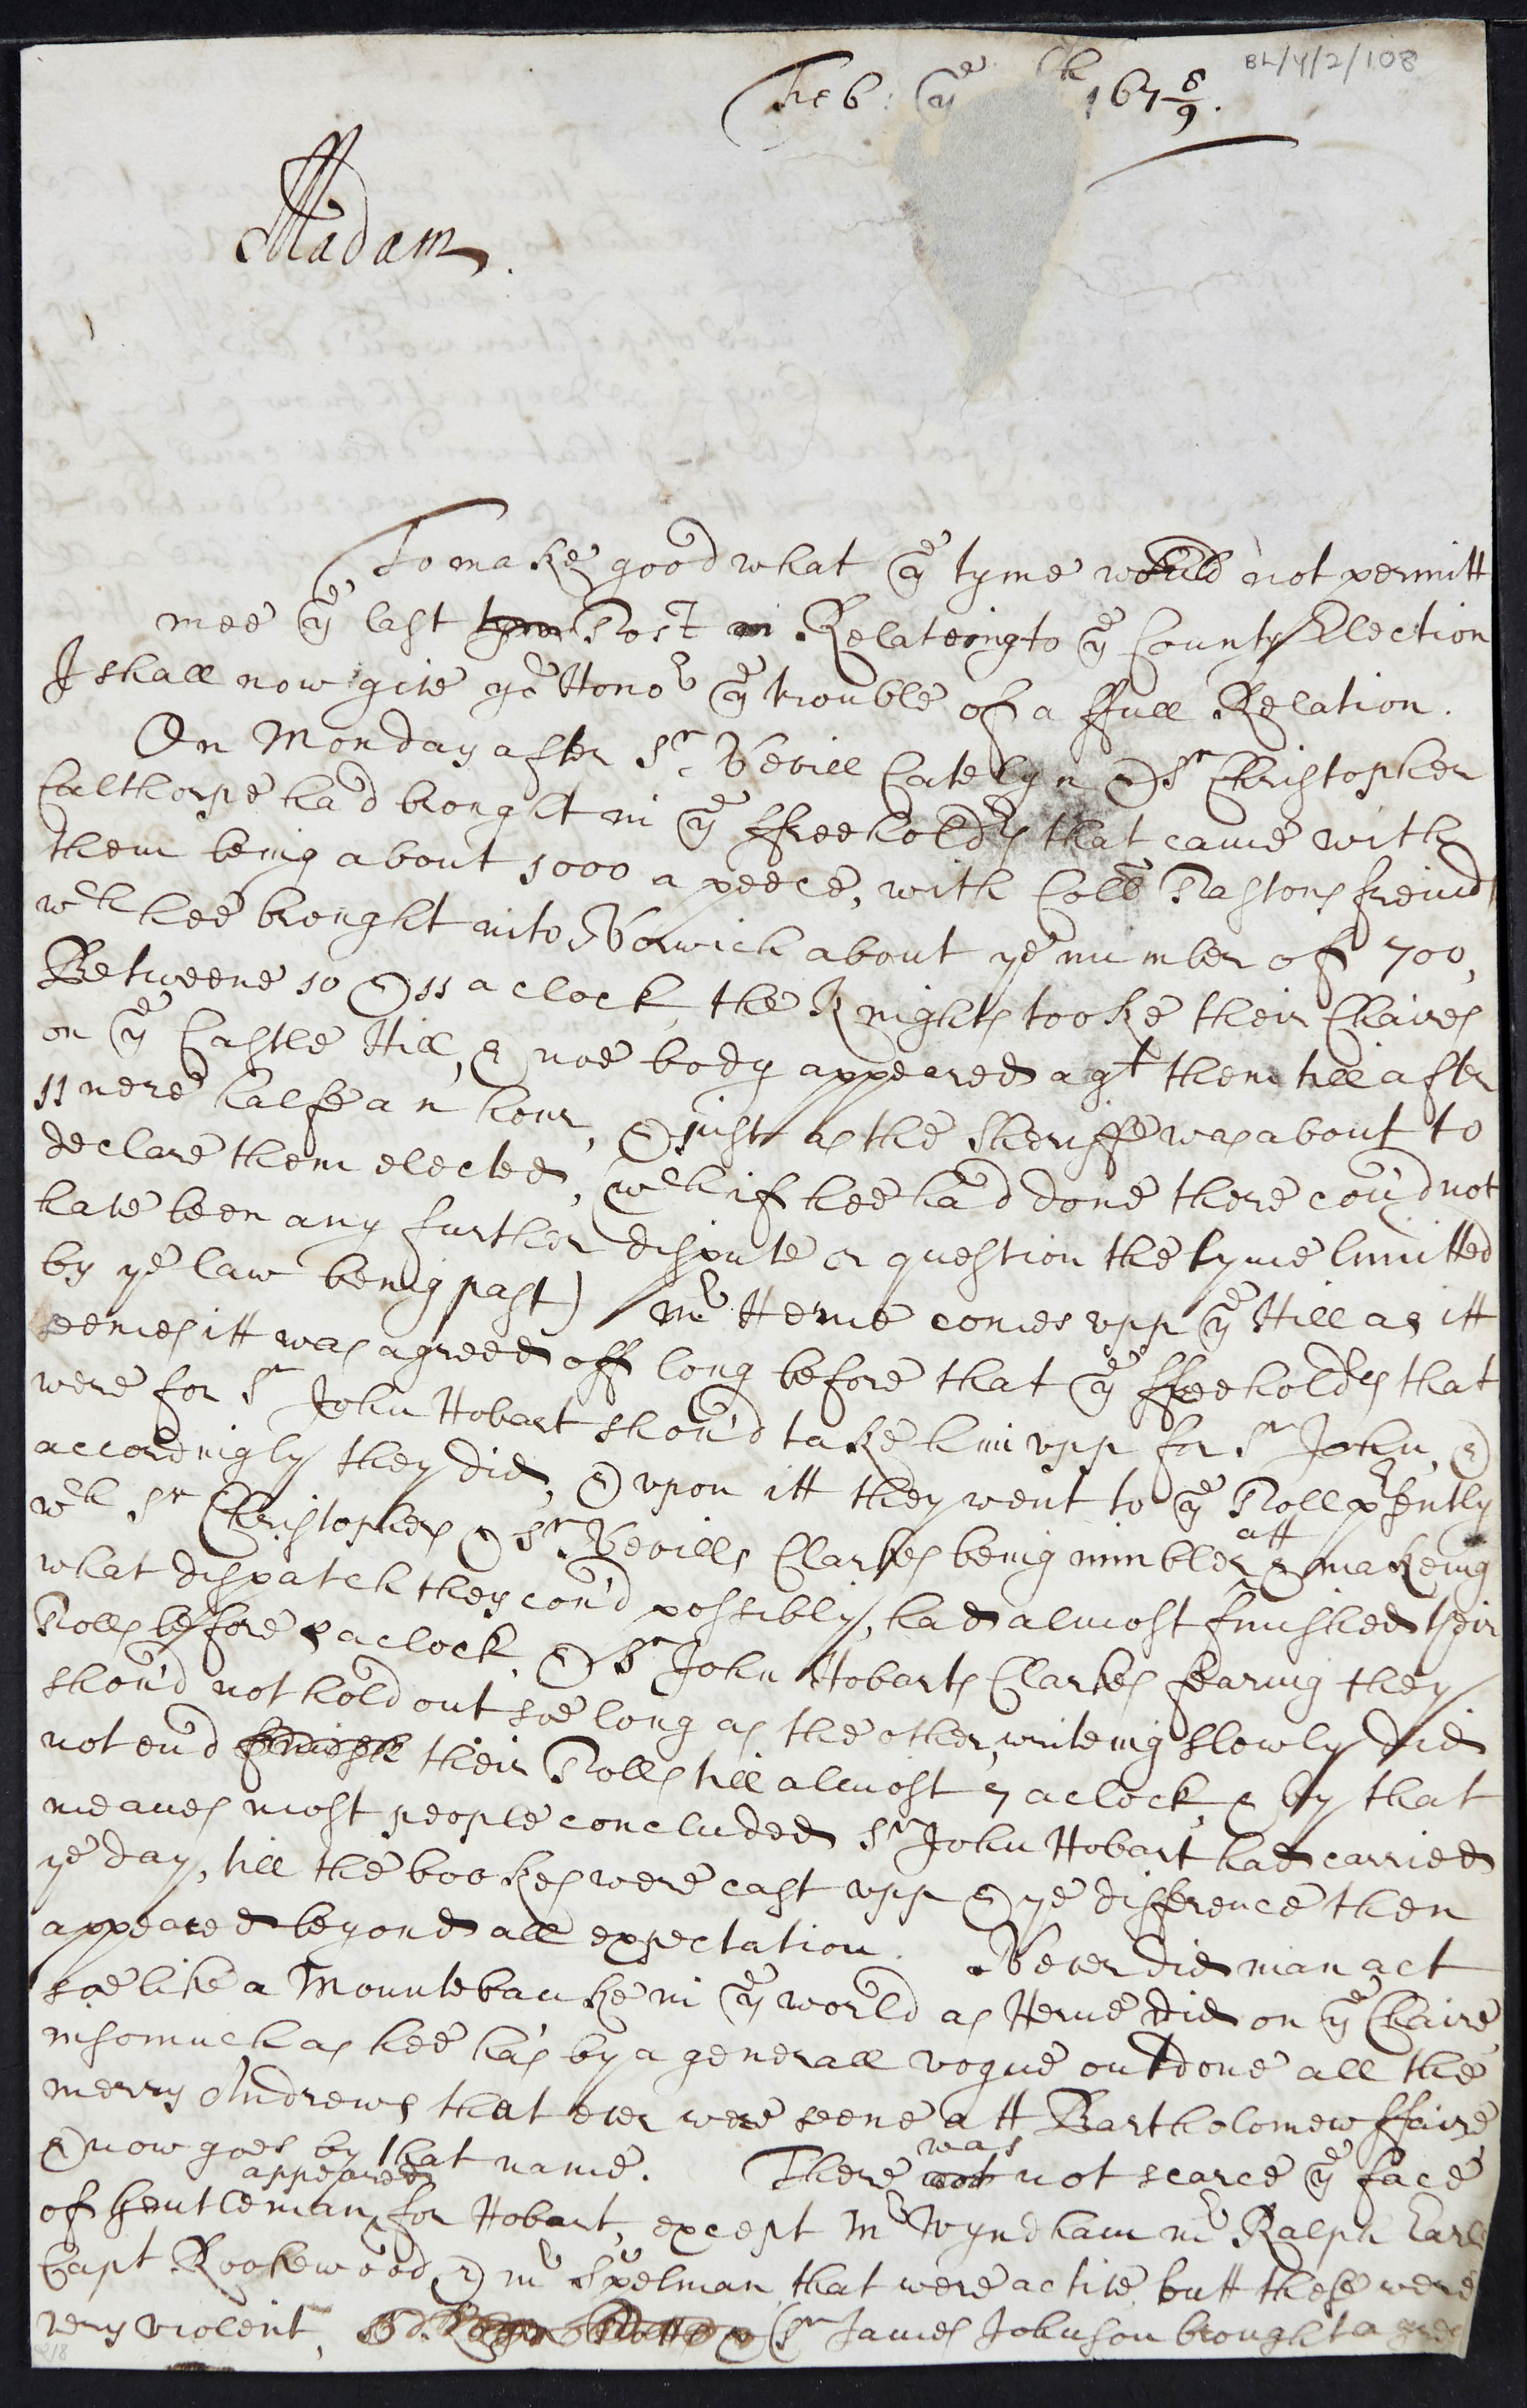 BL/Y/2/108
Feb: ye th 1678/9.
Madam.
To make good what ye tyme would not permitt
mee ye last Post Relateing to ye County Election
I shall now give yor Honor ye trouble of a ffull Relation.
On Monday after Sr Nevill Catelyn & Sr Christopher
Calthorpe had brought in ye ffreeholdrs that came with
them being about 1000 a peece, with Coll Pastons freinds
wch hee brought into Norwich about ye number of 700,
Betweene 10 & 11 a clock the Knights tooke their Chaires
on ye Castle Hill, & noe body appeared agt them till after
11 nere halfe an hour, & just as the Sheriffe was about to
declare them elected, (wch if hee had done there cou'd not
have been any further dispute or question the tyme limitted
by ye law being past) Mr Herne comes upp ye Hill as itt
seemes itt was agreed off long before that ye ffreeholdrs that
were for Sr John Hobart shou'd take him upp for Sr John, &
accordingly they did, & upon itt they went to ye Poll prsently
wch Sr Christophers & Sr Nevills Clarkes being nimbler att & makeing
what dispatch they cou'd possibly, had almost finished their
Polls before aclock, & Sr John Hobarts Clarkes fearing they
shou'd not hold out soe long as the other, writeing slowly did
not end finish their Polls till almost 7 aclock, & by that
meanes most people concluded Sr John Hobart had carried
ye day, till the bookes were cast upp & ye difference then
appeared beyond all expectation. Never did man act
soe like a Mountebanke in ye world as Herne did on ye Chaire
insomuch as hee has by a generall vogue outdone all the
merry Andrews that ever were seene att Bartholomew ffaire
& now goes by that name. There was not scarce ye face
of Gentleman appeared for Hobart, except Mr Wyndham Mr Ralph Earle
Capt Rookewood & Mr Spelman that were active butt these were
very violent, Sr James Johnson brought a